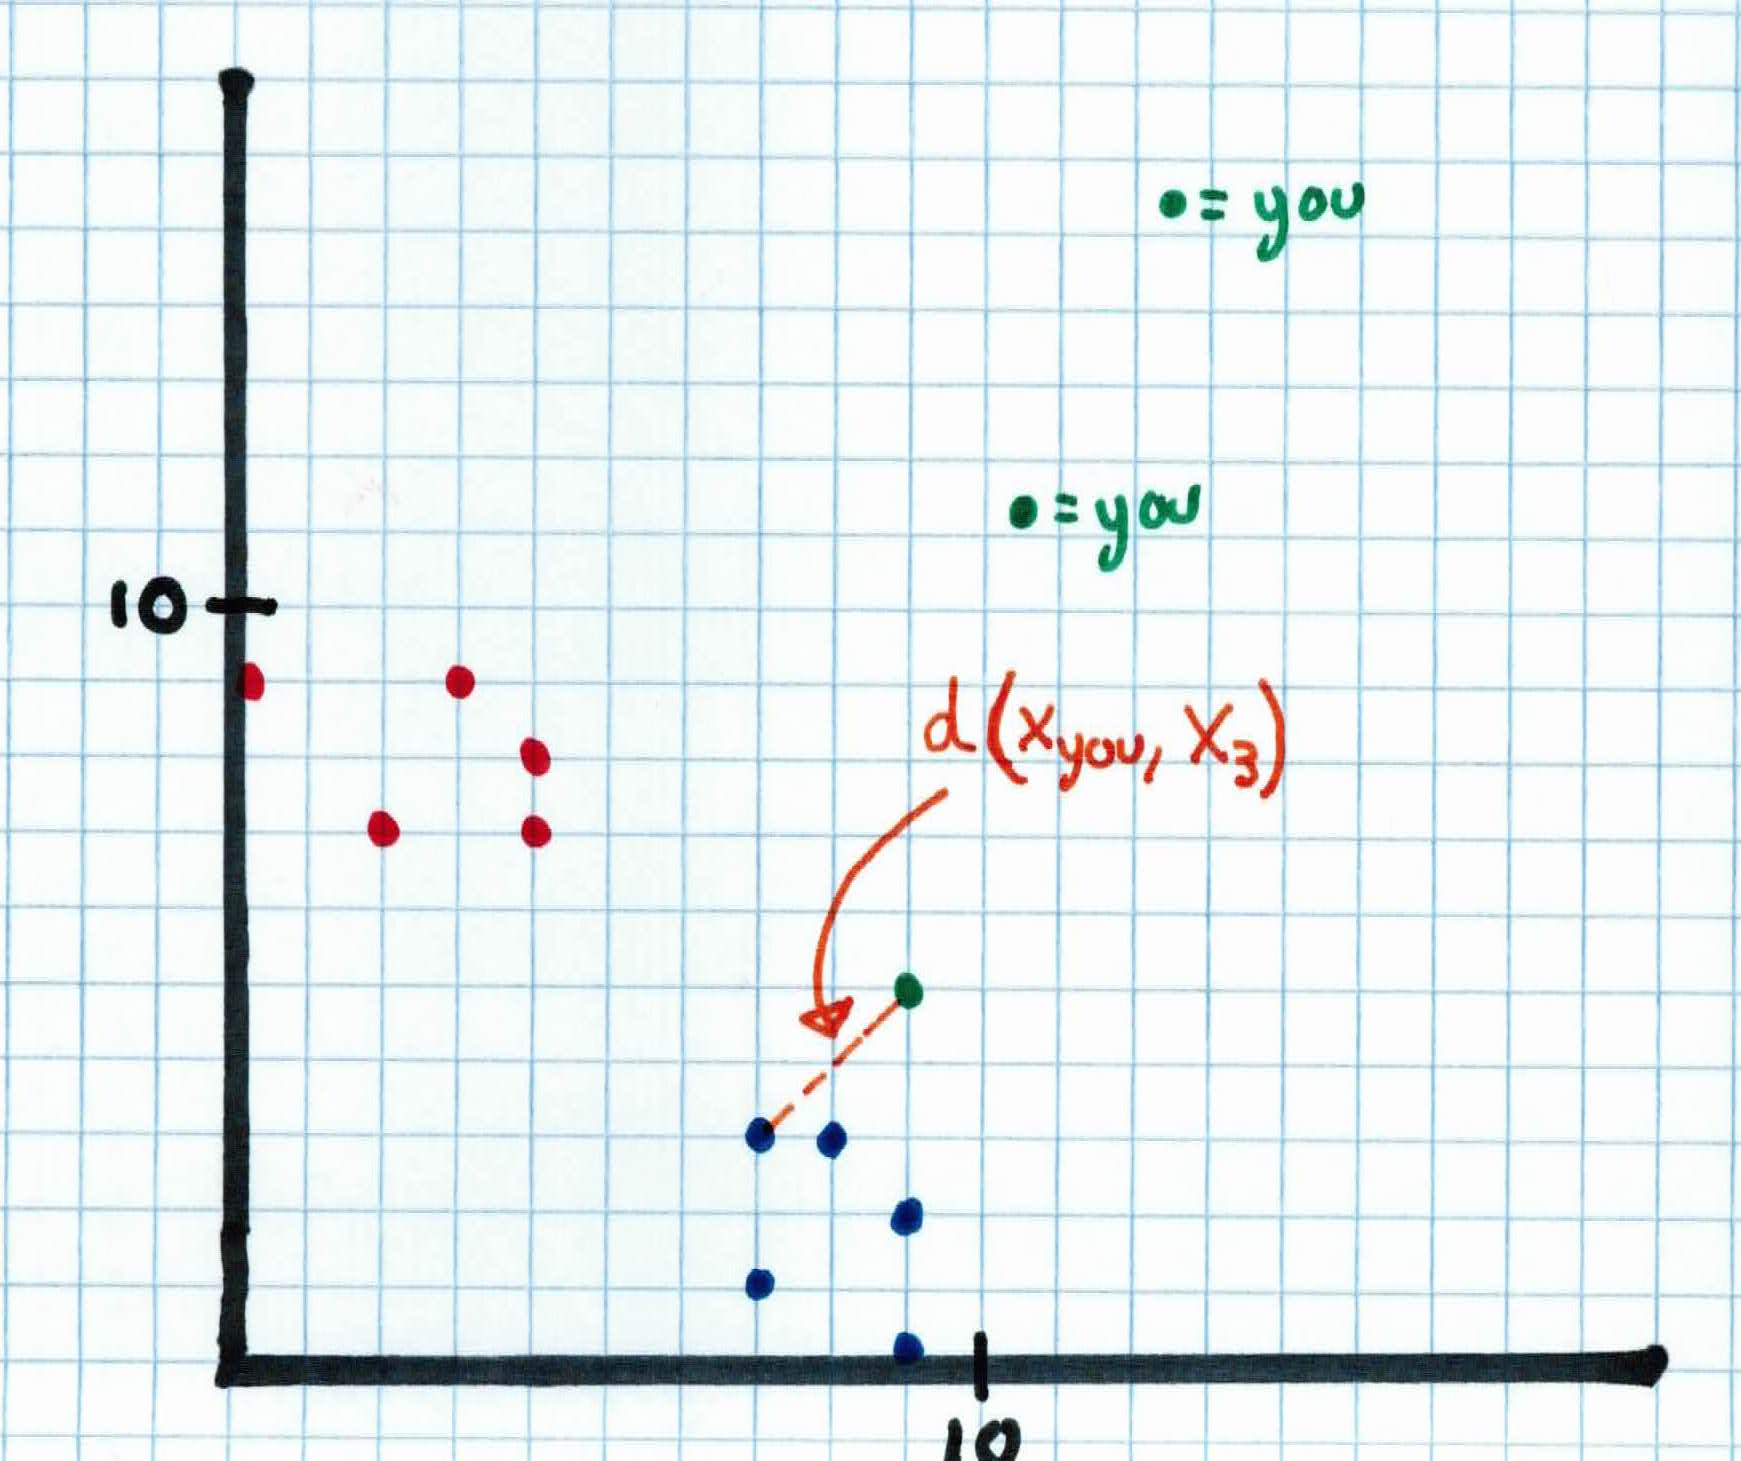 • = you
• = you
10
d(x_you, x_3)
10